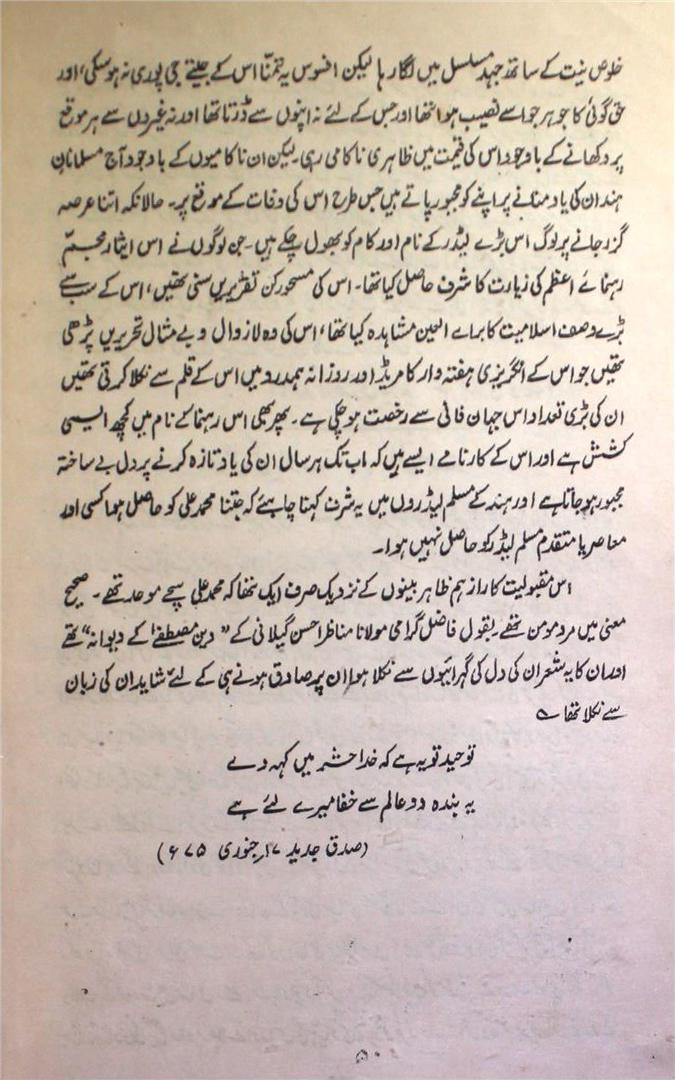 خلوص نیت کے ساتھ جہد مسلسل میں لگا رہا لیکن افسوس یہ تمنّا اس کے جیتے جی پوری نہ ہو سکی، اور
حق گوئی کا جو ہر جو اسے نصیب ہوا تھا اور جس کے لئے نہ اپنوں سے ڈرتا تھا اور نہ غیروں سے ہر موقع
پر دکھانے کے باوجود اس کی قیمت میں ظاہری ناکامی رہی۔ لیکن ان ناکامیوں کے باوجود آج مسلمانانِ
ہند ان کی یاد منانے پر اپنے کو مجبور پاتے ہیں جس طرح اس کی وفات کے موقع پر۔ حالانکہ اتنا عرصہ
گزر جانے پر لوگ اس بڑے لیڈر کے نام اور کام کو بھول چکے ہیں۔ جن لوگوں نے اس ایثار مجسّم
رہنمائے اعظم کی زیارت کا شرف حاصل کیا تھا۔ اس کی مسحور کن تقریریں سنی تھیں، اس کے سب سے
بڑے وصف اسلامیت کا براے العین مشاہدہ کیا تھا، اس کی وہ لازوال و بے مثال تحریریں پڑھی
تھیں جو اس کے انگریزی ہفتہ وار کامریڈ اور روزانہ ہمدرد میں اس کے قلم سے نکلا کرتی تھیں
ان کی بڑی تعداد اس جہان فانی سے رخصت ہو چکی ہے۔ پھر بھی اس رہنما کے نام میں کچھ ایسی
کشش ہے اور اس کے کارنامے ایسے ہیں کہ اب تک ہر سال ان کی یاد تازہ کرنے پر دل بے ساختہ
مجبور ہو جاتا ہے اور ہند کے مسلم لیڈروں میں یہ شرف کہنا چاہئے کہ جتنا محمد علی کو حاصل ہوا کسی اور
معاصر یا متقدم مسلم لیڈر کو حاصل نہیں ہوا۔
اس مقبولیت کا راز ہم ظاہر بینوں کے نزدیک صرف ایک تھا کہ محمد علی سچے موحد تھے۔ صحیح
معنی میں مرد مومن تھے۔ بقول فاضل گرامی مولانا مناظر احسن گیلانی کے "دین مصطفےٰ کے دیوانہ" تھے
اور ان کا یہ شعر ان کی دل کی گہرائیوں سے نکلا ہوا ان پر صادق ہونے ہی کے لئے شاید ان کی زبان
سے نکلا تھا ؎
توحید تو یہ ہے کہ خدا حشر میں کہہ دے
یہ بندہ دو عالم سے خفا میرے لئے ہے
(صدق جدید ۱۷ر جنوری ۷۵ء)
۵۰